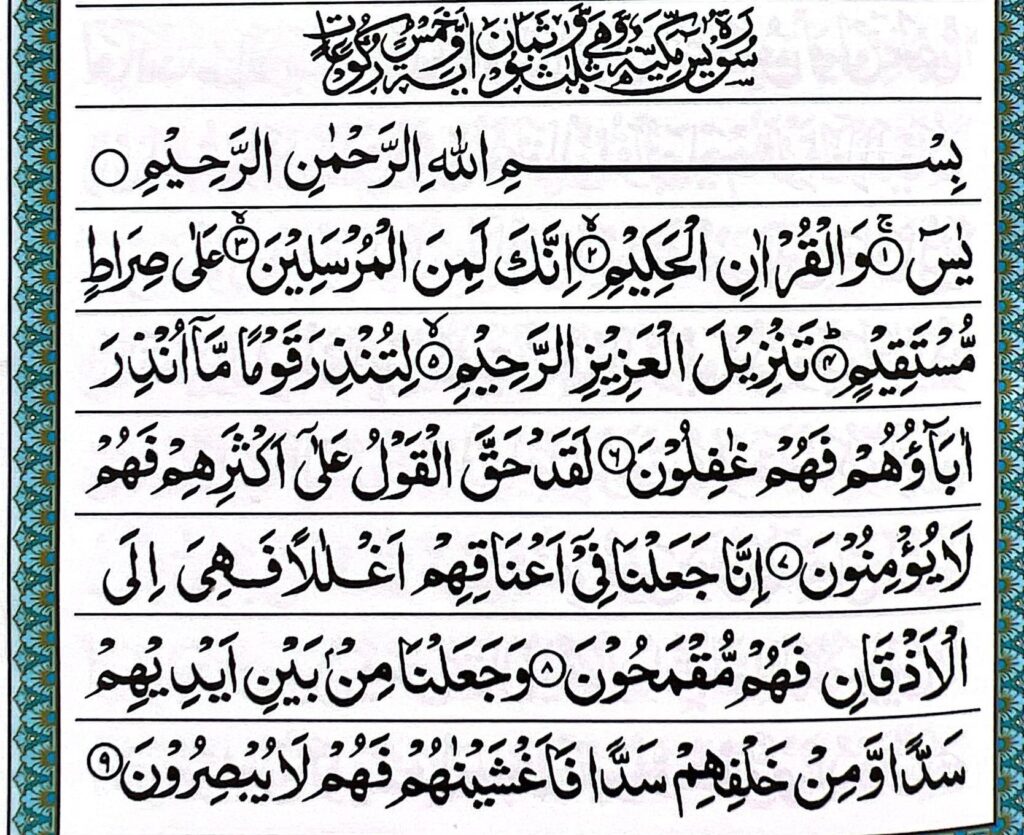 سورة يس مكية وهي ثلث وثمانون اية وخمس ركوعات
بِسْمِ اللهِ الرَّحْمٰنِ الرَّحِيْمِ
يٰسٓ ۚ ﴿١﴾ وَالْقُرْاٰنِ الْحَكِيْمِ ۙ ﴿٢﴾ اِنَّكَ لَمِنَ الْمُرْسَلِيْنَ ۙ ﴿٣﴾ عَلٰى صِرَاطٍ
مُّسْتَقِيْمٍ ؕ ﴿٤﴾ تَنْزِيْلَ الْعَزِيْزِ الرَّحِيْمِ ۙ ﴿٥﴾ لِتُنْذِرَ قَوْمًا مَّاۤ اُنْذِرَ
اٰبَآؤُهُمْ فَهُمْ غٰفِلُوْنَ ﴿٦﴾ لَقَدْ حَقَّ الْقَوْلُ عَلٰۤى اَكْثَرِهِمْ فَهُمْ
لَا يُؤْمِنُوْنَ ﴿٧﴾ اِنَّا جَعَلْنَا فِيْۤ اَعْنَاقِهِمْ اَغْلٰلًا فَهِيَ اِلَى
الْاَذْقَانِ فَهُمْ مُّقْمَحُوْنَ ﴿٨﴾ وَجَعَلْنَا مِنْۢ بَيْنِ اَيْدِيْهِمْ
سَدًّا وَّمِنْ خَلْفِهِمْ سَدًّا فَاَغْشَيْنٰهُمْ فَهُمْ لَا يُبْصِرُوْنَ ﴿٩﴾